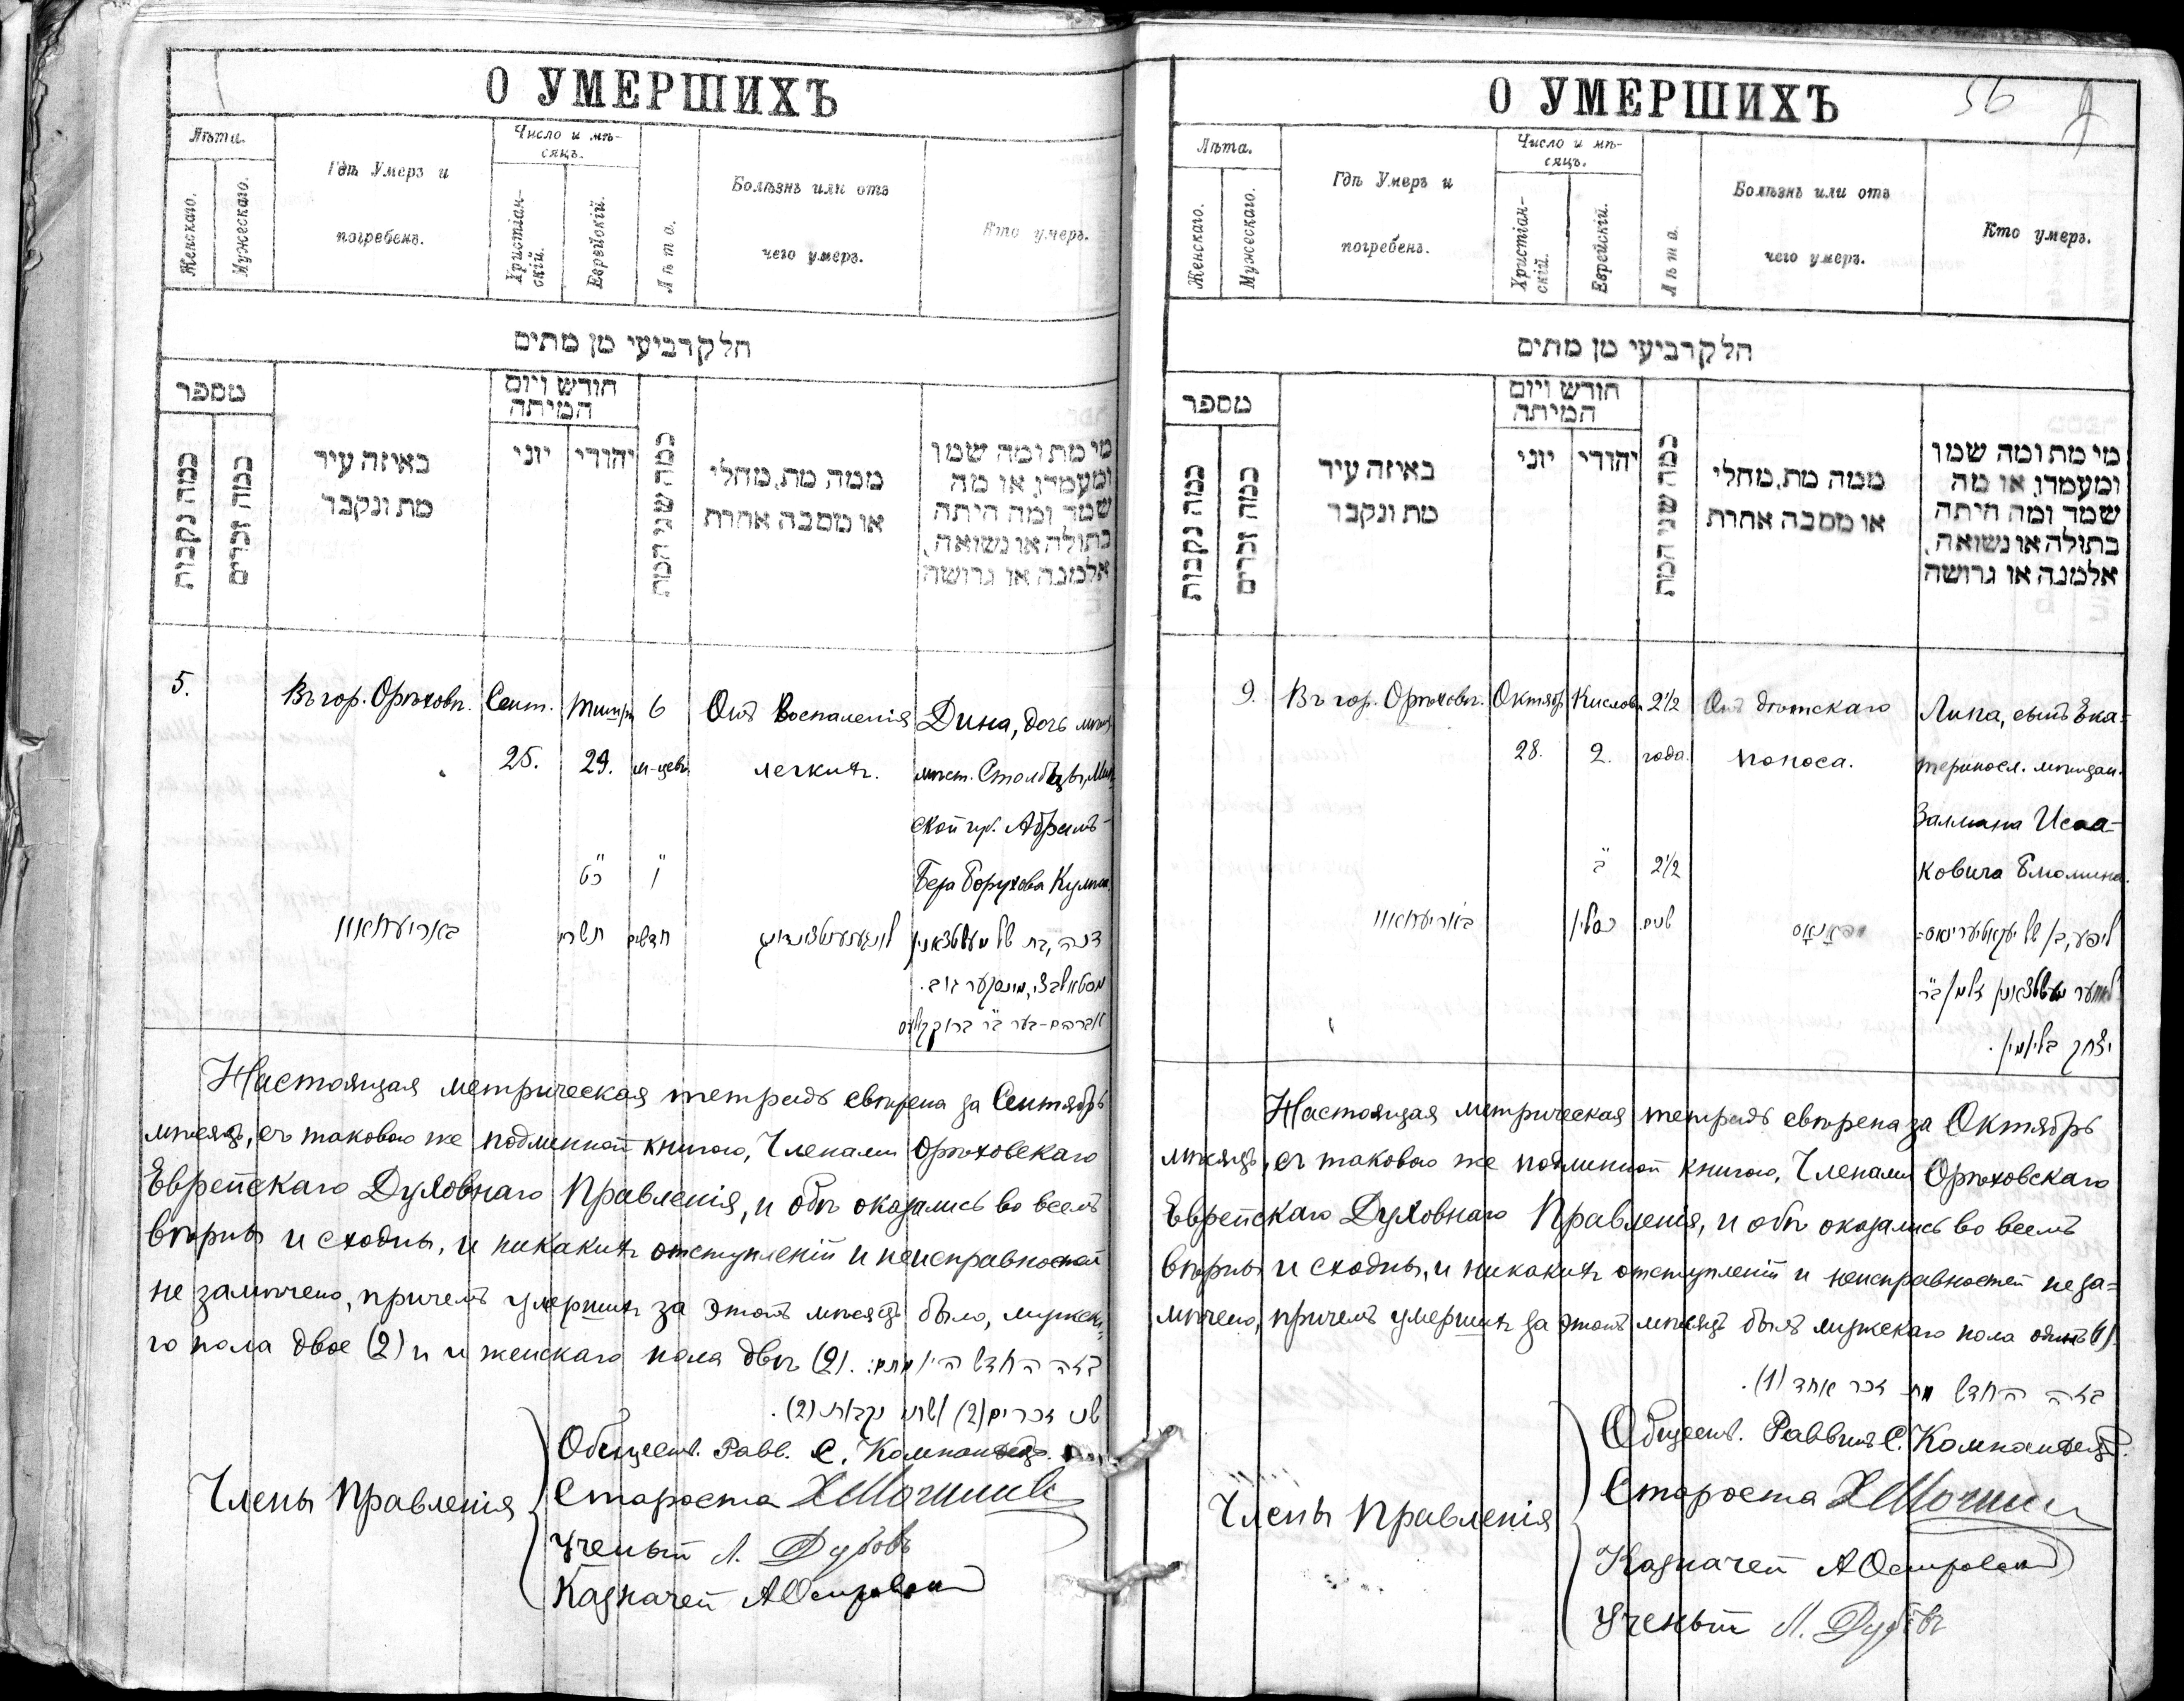 О УМЕРШИХЪ
Лѣта.
Женскаго.
Мужескаго.
Гдѣ Умеръ и
погребенъ.
Число и мѣ-
сяцъ.
Христіан-
скій.
Еврейскій.
Лѣта.
Болѣзнь или отъ
чего умеръ.
Кто умеръ.
חלק רביעי מן מתים
מספר
כמה נקבות
כמה זכרים
באיזה עיר
מת ונקבר
חודש ויום
המיתה
יוני
יהודי
כמה שני המת
ממה מת, מחלי
או מסבה אחרת
מי מת ומה שמו
ומעמדו, או מה
שמה ומה היתה
בתולה או נשואה,
אלמנה או גרושה
5.
Въ гор. Орѣховѣ.
Сент.
25.
Тишри
29.
6
м-цевъ
Отъ Воспаленія
легкихъ.
Дина, дочь мѣщ.
мѣст. Столбцы, Мин-
ской губ. Абрамъ-
Бера Борухова
כ״ט
תשרי
ו׳
חדשים
באריעחאוו
לונגענענטצונדונג
דינה, בת של מעשטשאנין
סטאלבצי, מינסקער גוב.
אברהם-בער ב״ר ברוך
Настоящая метрическая тетрадь свѣрена за Сентябрь
мѣсяцъ, съ таковою же подлинной книгою, Членами Орѣховскаго
Еврейскаго Духовнаго Правленія, и обѣ оказались во всемъ
вѣрны и сходны, и никакихъ отступленій и неисправностей
не замѣчено, причемъ умершихъ за этотъ мѣсяцъ было, мужска-
го пола двое (2) и женскаго пола двѣ (2). בזה החדש היו מתים:
שני זכרים (2) ושתי נקבות (2).
Члены Правленія
Обществ. Равв. С. Компанѣецъ.
Староста
Ученый Л. Дубовъ
Казначей А Островский
О УМЕРШИХЪ
56
Лѣта.
Женскаго.
Мужескаго.
Гдѣ Умеръ и
погребенъ.
Число и мѣ-
сяцъ.
Христіан-
скій.
Еврейскій.
Лѣта.
Болѣзнь или отъ
чего умеръ.
Кто умеръ.
חלק רביעי מן מתים
מספר
כמה נקבות
כמה זכרים
באיזה עיר
מת ונקבר
חודש ויום
המיתה
יוני
יהודי
כמה שני המת
ממה מת, מחלי
או מסבה אחרת
מי מת ומה שמו
ומעמדו, או מה
שמה ומה היתה
בתולה או נשואה,
אלמנה או גרושה
9.
Въ гор. Орѣховѣ.
Октябр.
28.
Кислевъ
2.
2½
года.
Отъ дѣтскаго
поноса.
Липа, сынъ Ека-
териносл. мѣщан.
Залмана Исаа-
ковича Блюмина.
ב׳
כסליו
2½
שנים.
באריעחאוו
ליפע, בן של יעקאטערינאס-
לאווער מעשטשאנין זלמן ב״ר
יצחק בליומין.
Настоящая метрическая тетрадь свѣрена за Октябрь
мѣсяцъ, съ таковою же подлинной книгою, Членами Орѣховскаго
Еврейскаго Духовнаго Правленія, и обѣ оказались во всемъ
вѣрны и сходны, и никакихъ отступленій и неисправностей не за-
мѣчено, причемъ умершихъ за этотъ мѣсяцъ былъ мужскаго пола одинъ (1).
בזה החדש מת זכר אחד (1).
Члены Правленія
Обществ. Раввинъ С. Компанѣецъ.
Староста
Казначей А Островский
Ученый Л. Дубовъ